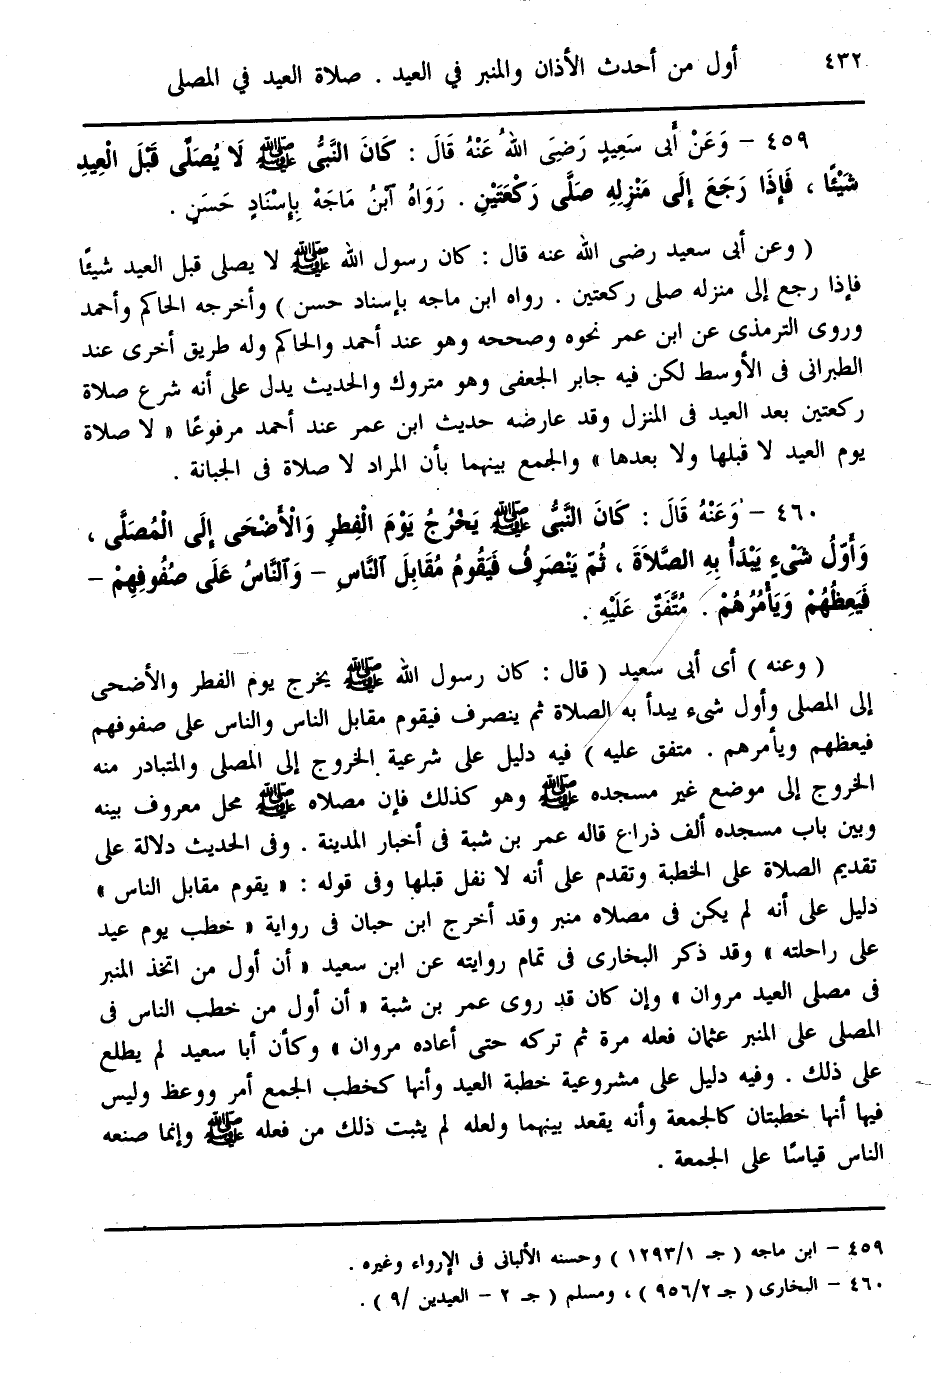 ٤٣٢ أول من أحدث الأذان والمنبر في العيد . صلاة العيد في المصلى
٤٥٩ – وَعَنْ أَبى سَعِيدٍ رَضِىَ اللهُ عَنْهُ قَالَ : كَانَ النَّبىُّ ﷺ لَا يُصَلّى قَبْلَ الْعِيدِ
شَيْئًا ، فَإِذَا رَجَعَ إِلَى مَنْزِلِهِ صَلَّى رَكْعَتَيْنِ . رَوَاهُ آبْنُ مَاجَهْ بِإِسْنَادٍ حَسَنٍ .
( وعن أبى سعيد رضى الله عنه قال : كان رسول الله ﷺ لا يصلى قبل العيد شيئًا
فإذا رجع إلى منزله صلى ركعتين . رواه ابن ماجه بإسناد حسن ) وأخرجه الحاكم وأحمد
وروى الترمذى عن ابن عمر نحوه وصححه وهو عند أحمد والحاكم وله طريق أخرى عند
الطبرانى فى الأوسط لكن فيه جابر الجعفى وهو متروك والحديث يدل على أنه شرع صلاة
ركعتين بعد العيد فى المنزل وقد عارضه حديث ابن عمر عند أحمد مرفوعًا « لا صلاة
يوم العيد لا قبلها ولا بعدها » والجمع بينهما بأن المراد لا صلاة فى الجبانة .
٤٦٠ – وَعَنْهُ قَالَ : كَانَ النَّبىُّ ﷺ يَخْرُجُ يَوْمَ الْفِطرِ وَالْأَضْحَى إِلَى الْمُصَلَّى ،
وَأَوّلُ شَىْءٍ يَبْدَأُ بِهِ الصَّلاَةَ ، ثُمّ يَنْصَرِفُ فَيَقُومُ مُقَابِلَ آلنَّاسِ – وَآلنَّاسُ عَلَى صُفُوفِهِمْ –
فَيَعِظُهُمْ وَيَأْمُرُهُمْ . مُتَّفَقٌ عَلَيْهِ .
( وعنه ) أى أبى سعيد ( قال : كان رسول الله ﷺ يخرج يوم الفطر والأضحى
إلى المصلى وأول شىء يبدأ به الصلاة ثم ينصرف فيقوم مقابل الناس والناس على صفوفهم
فيعظهم ويأمرهم . متفق عليه ) فيه دليل على شرعية الخروج إلى المصلى والمتبادر منه
الخروج إلى موضع غير مسجده ﷺ وهو كذلك فإن مصلاه ﷺ محل معروف بينه
وبين باب مسجده ألف ذراع قاله عمر بن شبة فى أخبار المدينة . وفى الحديث دلالة على
تقديم الصلاة على الخطبة وتقدم على أنه لا نفل قبلها وفى قوله : « يقوم مقابل الناس »
دليل على أنه لم يكن فى مصلاه منبر وقد أخرج ابن حبان فى رواية « خطب يوم عيد
على راحلته » وقد ذكر البخارى فى تمام روايته عن ابن سعيد « أن أول من اتخذ المنبر
فى مصلى العيد مروان » وإن كان قد روى عمر بن شبة « أن أول من خطب الناس فى
المصلى على المنبر عثمان فعله مرة ثم تركه حتى أعاده مروان » وكأن أبا سعيد لم يطلع
على ذلك . وفيه دليل على مشروعية خطبة العيد وأنها كخطب الجمع أمر ووعظ وليس
فيها أنها خطبتان كالجمعة وأنه يقعد بينهما ولعله لم يثبت ذلك من فعله ﷺ وإنما صنعه
الناس قياسًا على الجمعة .
٤٥٩ – ابن ماجه ( جـ ١٢٩٣/١ ) وحسنه الألبانى فى الإرواء وغيره .
٤٦٠ – البخارى ( جـ ٩٥٦/٢ ) ، ومسلم ( جـ ٢ – العيدين /٩ ) .